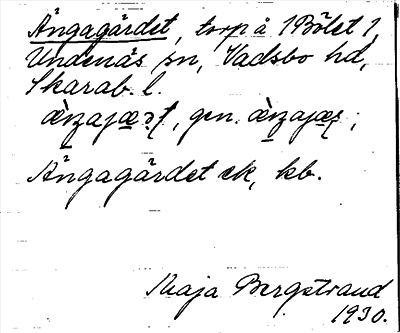 Ängagärdet, torp å 1 Bölet 1,
Undenäs sn, Vadsbo hd,
Skarab. l.
gen.
Ängagärdet ek, kb.
Maja Bergstrand
1930.